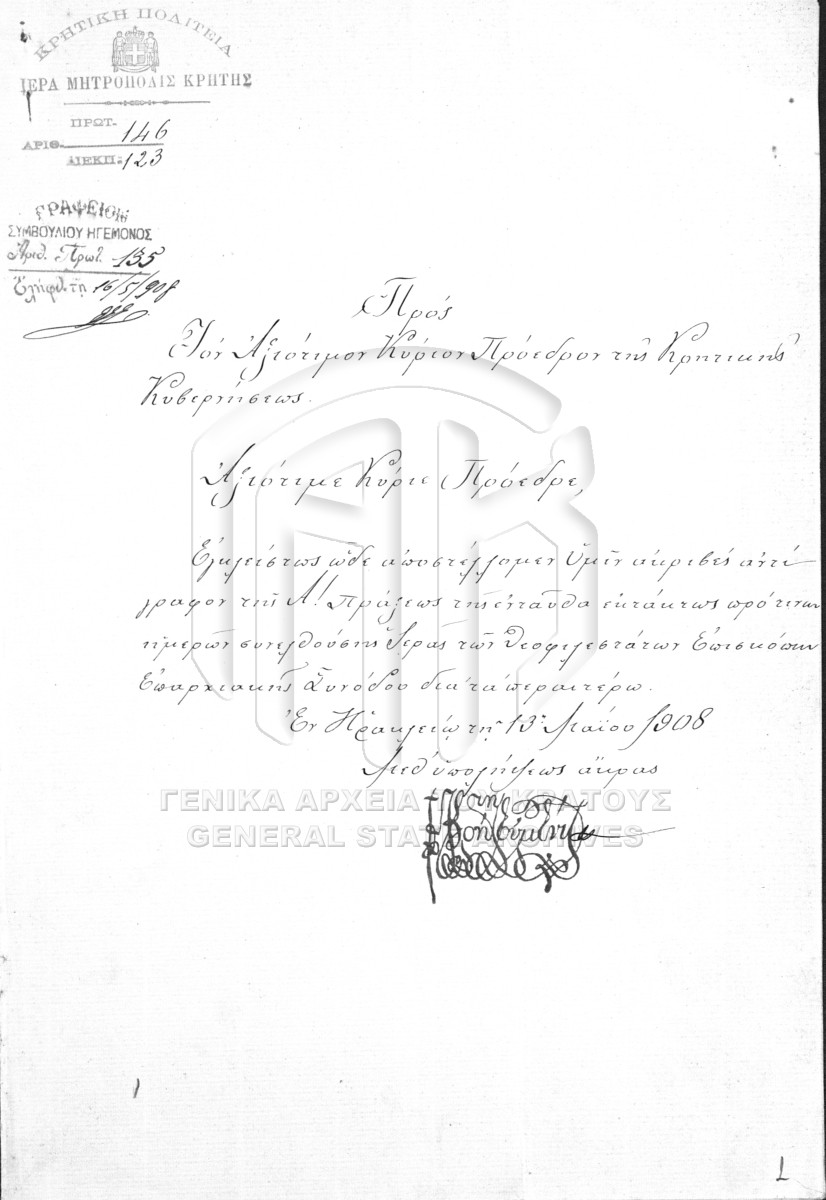 ΚΡΗΤΙΚΗ ΠΟΛΙΤΕΙΑ
ΙΕΡΑ ΜΗΤΡΟΠΟΛΙΣ ΚΡΗΤΗΣ
ΠΡΩΤ. 146
ΑΡΙΘ.
ΔΙΕΚΠ. 123
ΓΡΑΦΕΙΟΝ
ΣΥΜΒΟΥΛΙΟΥ ΗΓΕΜΟΝΟΣ
Ἀριθ. Πρωτ. 135
Ἐλήφθ. τῇ 16/5/908
Πρός
Τόν Ἀξιότιμον Κύριον Πρόεδρον τῆς Κρητικῆς
Κυβερνήσεως.
Ἀξιότιμε Κύριε Πρόεδρε,
Ἐγκλείστως ὧδε ἀποστέλλομεν Ὑμῖν ἀκριβές ἀντί
γραφον τῆς Λ! Πράξεως τῆς ἐνταῦθα ἐκτάκτως πρό τινων
ἡμερῶν συνελθούσης Ἱερᾶς τῶν Θεοφιλεστάτων Ἐπισκόπων
Ἐπαρχιακῆς Συνόδου διά τά περαιτέρω.
Ἐν Ἡρακλείῳ τῇ 13ῃ Μαΐου 1908
Μεθ' ὑπολήψεως ἄκρας
† Ὁ Κρήτης Εὐμένιος
ΓΕΝΙΚΑ ΑΡΧΕΙΑ ΤΟΥ ΚΡΑΤΟΥΣ
GENERAL STATE ARCHIVES
1